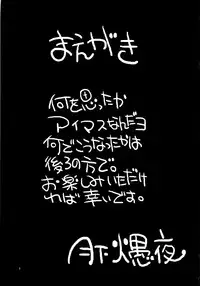 まえがき
何を思ったか
アイマスなんだヨ
何でこうなったかは
後ろの方で。
お楽しみいただけ
れば幸いです。
月下燐愚夜